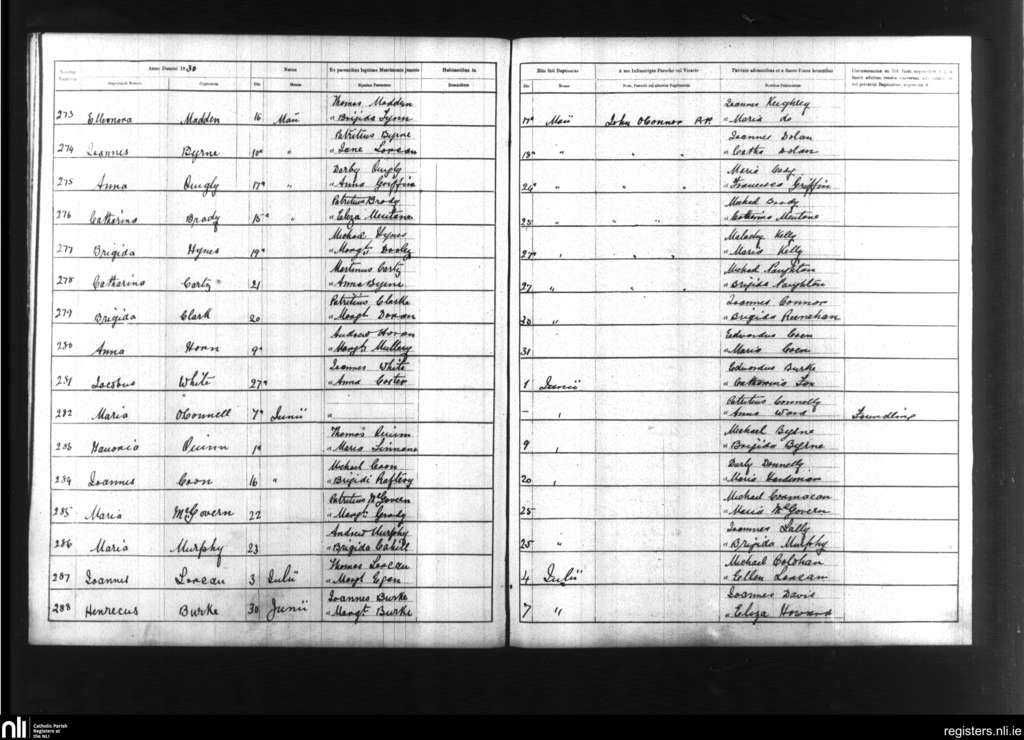 Anno Domini 1830
Natus
Ex parentibus legitimo Matrimonio junctis
Habitantibus in
Die
Mensis
Domicilium
273 Elleonora Madden 16 Maii Thomas Madden
" Brigida Flynn
274 Joannes Byrne 10° " Patritius Byrne
" Jane Lorcan
275 Anna Quigly 17° " Darby Quigly
" Anna Griffin
276 Catharina Brody 15° " Patritius Brody
" Eliza
277 Brigida Hynes 19° Michael Hynes
" Margt Dooley
278 Catharina Carty 21 Martinus Carty
" Anna Byrne
279 Brigida Clark 20 Patritius Clarke
" Margt Doran
280 Anna Horan 9° Andrew Horan
" Margt Mullary
281 Jacobus White 27° Joannes White
" Anna Coster
282 Maria OConnell 7° Junii "
283 Quinn 1° Thomas Quinn
" Maria
284 Joannes Coon 16 " Michael Coon
" Brigidi Raftery
285 Maria McGovern 22 Patritius McGovern
" Margt Grady
286 Maria Murphy 23 Andrew Murphy
" Brigida Cahill
287 Joannes Lorcan 3 Julii Thomas Lorcan
" Margt Egan
288 Henrecus Burke 30 Junii Joannes Burke
" Margt Burke
Die
Mensis
A me Infrascripto Parocho vel Vicario
17° Maii John OConnor P.P. Joannes Keighley
" Maria do
18° " " " Joannes Dolan
" Cath° Dolan
24° " " " Maria Cody
" Francesca Griffin
25 " " " Michael Brody
" Catharina
27° " " " Malachy Kelly
" Maria Kelly
27 " " Michael Naughton
" Brigida Naughton
30 " Joannes Connor
" Brigida Reenehan
31 Edwardus Coen
" Maria Coen
1 Junii Edwardus Burke
" Catharina Fox
— " Patritius Connolly
" Anna Ward Foundling
9 " Michael Byrne
" Brigida Byrne
20 " Darly Donnelly
" Maria Hardeman
25 Michael Cormacan
" Maria McGovern
25 " Joannes Lally
" Brigida Murphy
4 Julii Michael Colohan
" Ellen Lorcan
7 " Joannes Davis
" Eliza Howard
nli
Catholic Parish
Registers at
the NLI
registers.nli.ie